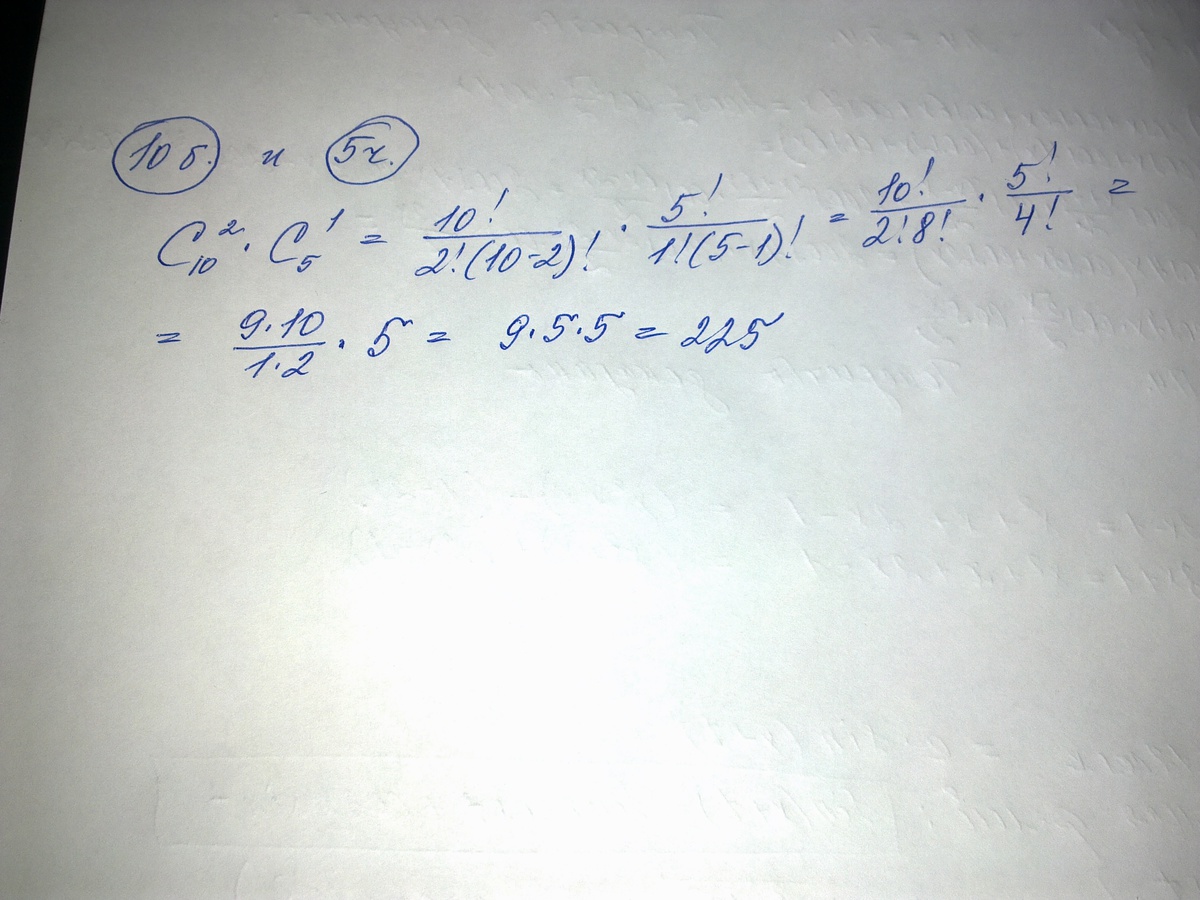 10 б. и 5 ч.
C₁₀² · C₅¹ = 10!/(2!(10-2)!) · 5!/(1!(5-1)!) = 10!/(2!8!) · 5!/4! =
= (9·10)/(1·2) · 5 = 9·5·5 = 225